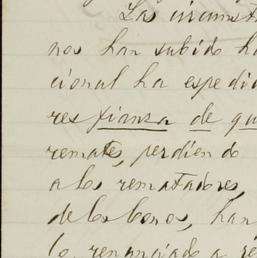 Las circunst
nos han subido ha
cional ha espedid
res fianza de qu
remates, perdiendo
a los rematadores
de los bonos, han
lo renunciado a re